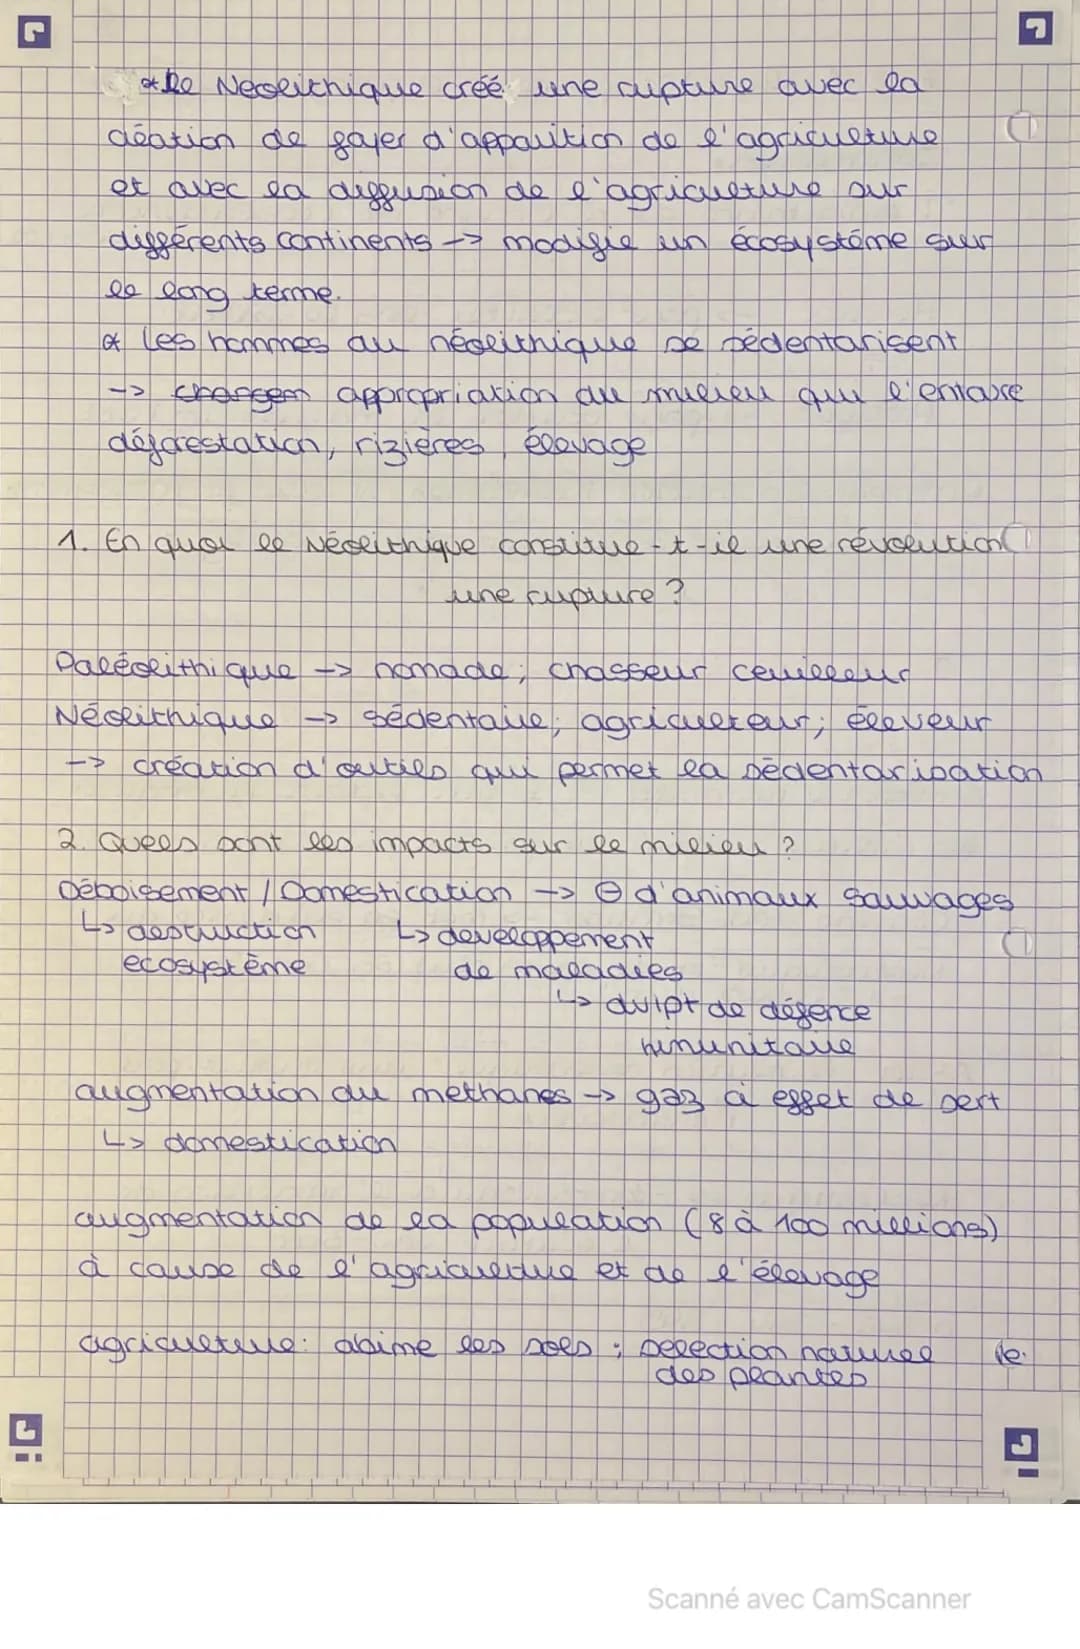 * Le Neolithique créé une rupture avec la
création de foyer d'apparition de l'agriculture
et avec la diffusion de l'agriculture sur
différents continents -> modifie un écosystéme sur
le long terme.
* Les hommes au néolithique se sédentarisent
-> appropriation du milieu qui l'entoure
déforestation, rizières, élevage
1. En quoi le Néolithique constitue-t-il une révolution
une rupture ?
Paléolithique -> nomade; chasseur ceuilleur
Néolithique -> sédentaire; agriculteur; éleveur
-> création d'outils qui permet la sédentarisation
2. Quels sont les impacts sur le milieu ?
Déboisement / Domestication -> ⊖ d'animaux sauvages
↳ destruction ↳ developpement
ecosystème de maladies
↳ dvlpt de défence
immunitaire
augmentation du methanes -> gaz à effet de sert
↳ domestication
augmentation de la population (8 à 100 millions)
à cause de l'agriculture et de l'élevage
agriculture: abime les sols ; selection naturel
des plantes
Scanné avec CamScanner